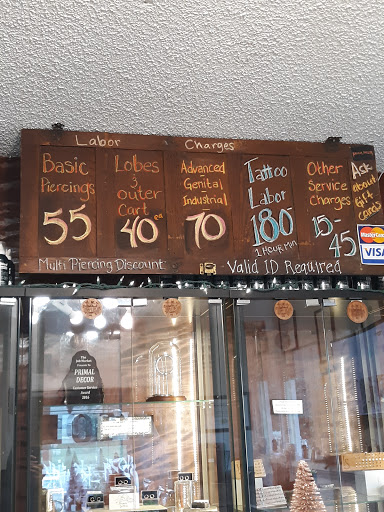 Labor Charges
Basic
Piercings
55
Lobes
&
outer
Cart
40 ea
Advanced
-
Genital
-
Industrial
70
Tattoo
Labor
180
1 Hour Min
Other
Service
Charges
15-
45
Ask
about
Gift
cards
MasterCard
VISA
Multi Piercing Discount
Valid ID Required
PRIMAL
DECOR
Customer Service
Award